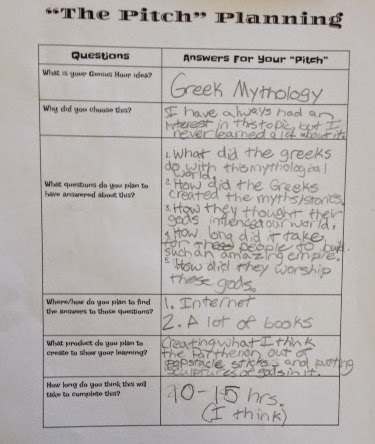 "The Pitch" Planning
Questions
Answers For Your "Pitch"
What is your Genius Hour idea?
Greek Mythology
Why did you choose this?
I have always had an
interest in this topic, but I
never learned a lot about it.
What questions do you plan to
have answered about this?
1. What did the greeks
do with this mythological
world.
2. How did the Greeks
created the myths/stories.
3. How they thought their
gods influenced our world.
4. How long did it take
for these people to built
such an amazing empire.
5. How did they worship
these gods.
Where/how do you plan to find
the answers to those questions?
1. Internet
2. A lot of books
What product do you plan to
create to show your learning?
Creating what I think
the Parthenon out of
popsicle sticks and putting
sculptures of gods in it.
How long do you think this will
take to complete this?
10-15 hrs.
(I think)